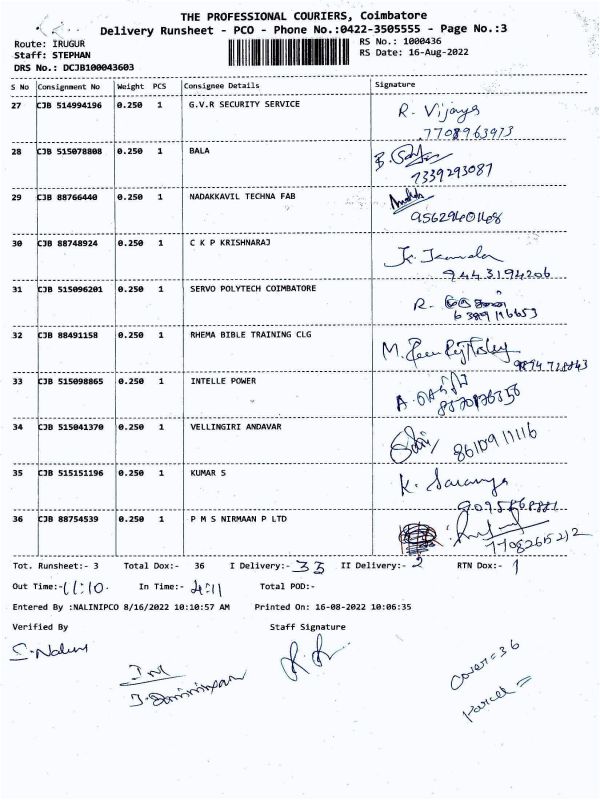 THE PROFESSIONAL COURIERS, Coimbatore
Delivery Runsheet - PCO - Phone No.:0422-3505555 - Page No.:3
Route: IRUGUR RS No.: 1000436
Staff: STEPHAN RS Date: 16-Aug-2022
DRS No.: DCJB100043603
S No Consignment No Weight PCS Consignee Details Signature
27 CJB 514994196 0.250 1 G.V.R SECURITY SERVICE R. Vijaya
7708963973
28 CJB 515078808 0.250 1 BALA
7339293087
29 CJB 88766440 0.250 1 NADAKKAVIL TECHNA FAB
30 CJB 88748924 0.250 1 C K P KRISHNARAJ
9443194206
31 CJB 515096201 0.250 1 SERVO POLYTECH COIMBATORE R.
32 CJB 88491158 0.250 1 RHEMA BIBLE TRAINING CLG M.
33 CJB 515098865 0.250 1 INTELLE POWER A.
34 CJB 515041370 0.250 1 VELLINGIRI ANDAVAR
35 CJB 515151196 0.250 1 KUMAR S K. Saranya
36 CJB 88754539 0.250 1 P M S NIRMAAN P LTD
Tot. Runsheet:- 3 Total Dox:- 36 I Delivery:- 33 II Delivery:- 2 RTN Dox:- 1
Out Time:- 11:10. In Time:- 4:11 Total POD:-
Entered By :NALINIPCO 8/16/2022 10:10:57 AM Printed On: 16-08-2022 10:06:35
Verified By Staff Signature
Cover = 36
Parcel =